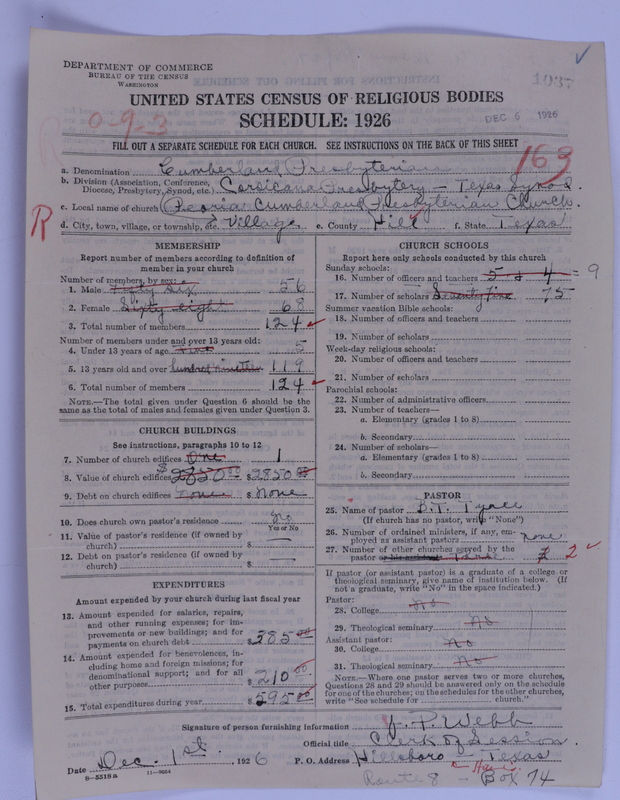 DEPARTMENT OF COMMERCE
BUREAU OF THE CENSUS
WASHINGTON
UNITED STATES CENSUS OF RELIGIOUS BODIES
SCHEDULE: 1926
DEC 6 1926
0-9-3
FILL OUT A SEPARATE SCHEDULE FOR EACH CHURCH. SEE INSTRUCTIONS ON THE BACK OF THIS SHEET
163
a. Denomination Cumberland Presbyterian
b. Division (Association, Conference, Diocese, Presbytery, Synod, etc.) Corsicana Presbytery — Texas Synod.
c. Local name of church Peoria Cumberland Presbyterian Church.
R
d. City, town, village, or township, etc. Village. e. County Hill f. State Texas
MEMBERSHIP
Report number of members according to definition of
member in your church
Number of members, by sex:
1. Male Fifty six 56
2. Female Sixty eight 68
3. Total number of members 124
Number of members under and over 13 years old:
4. Under 13 years of age five 5
5. 13 years old and over hundred nineteen 119
6. Total number of members 124
NOTE.—The total given under Question 6 should be the
same as the total of males and females given under Question 3.
CHURCH BUILDINGS
See instructions, paragraphs 10 to 12
7. Number of church edifices One 1
8. Value of church edifices $2850.00 $2850.00
9. Debt on church edifices none $ None
10. Does church own pastor's residence No
Yes or No
11. Value of pastor's residence (if owned by
church) $
12. Debt on pastor's residence (if owned by
church) $
EXPENDITURES
Amount expended by your church during last fiscal year
13. Amount expended for salaries, repairs,
and other running expenses; for im-
provements or new buildings; and for
payments on church debt $385.00
14. Amount expended for benevolences, in-
cluding home and foreign missions; for
denominational support; and for all
other purposes $210.00
15. Total expenditures during year $595.00
CHURCH SCHOOLS
Report here only schools conducted by this church
Sunday schools:
16. Number of officers and teachers 5 & 4 = 9
17. Number of scholars Seventy five 75
Summer vacation Bible schools:
18. Number of officers and teachers
19. Number of scholars
Week-day religious schools:
20. Number of officers and teachers
21. Number of scholars
Parochial schools:
22. Number of administrative officers
23. Number of teachers—
a. Elementary (grades 1 to 8)
b. Secondary
24. Number of scholars—
a. Elementary (grades 1 to 8)
b. Secondary
PASTOR
25. Name of pastor B.T.
(If church has no pastor, write "None")
26. Number of ordained ministers, if any, em-
ployed as assistant pastors none
27. Number of other churches served by the
pastor or his assistant 2 2
If pastor (or assistant pastor) is a graduate of a college or
theological seminary, give name of institution below. (If
not a graduate, write "No" in the space indicated.)
Pastor:
28. College No
29. Theological seminary No
Assistant pastor:
30. College No
31. Theological seminary No
NOTE.—Where one pastor serves two or more churches,
Questions 28 and 29 should be answered only on the schedule
for one of the churches; on the schedules for the other churches,
write "See schedule for church."
Signature of person furnishing information J. P. Webb
Official title Clerk of Session.
Date Dec. 1st. 1926 P. O. Address Hillsboro Texas
8-5518a 11-9064
Route 8 - Box 74